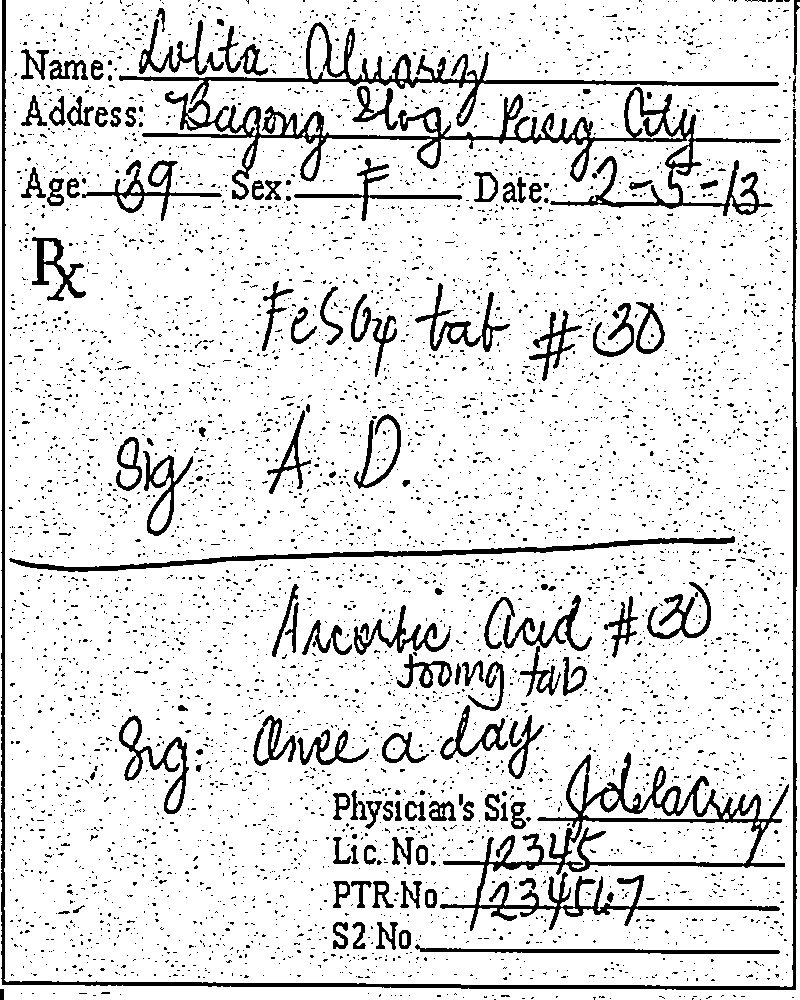 Name: Lolita Alvarez
Address: Bagong Ilog, Pasig City
Age: 39 Sex: F Date: 2-5-13
Rx
FeSO4 tab #30
Sig: A.D.
Ascorbic Acid #30
500mg tab
Sig: Once a day
Physician's Sig. Jdelacruz
Lic. No. 12345
PTR No. 1234567
S2 No.